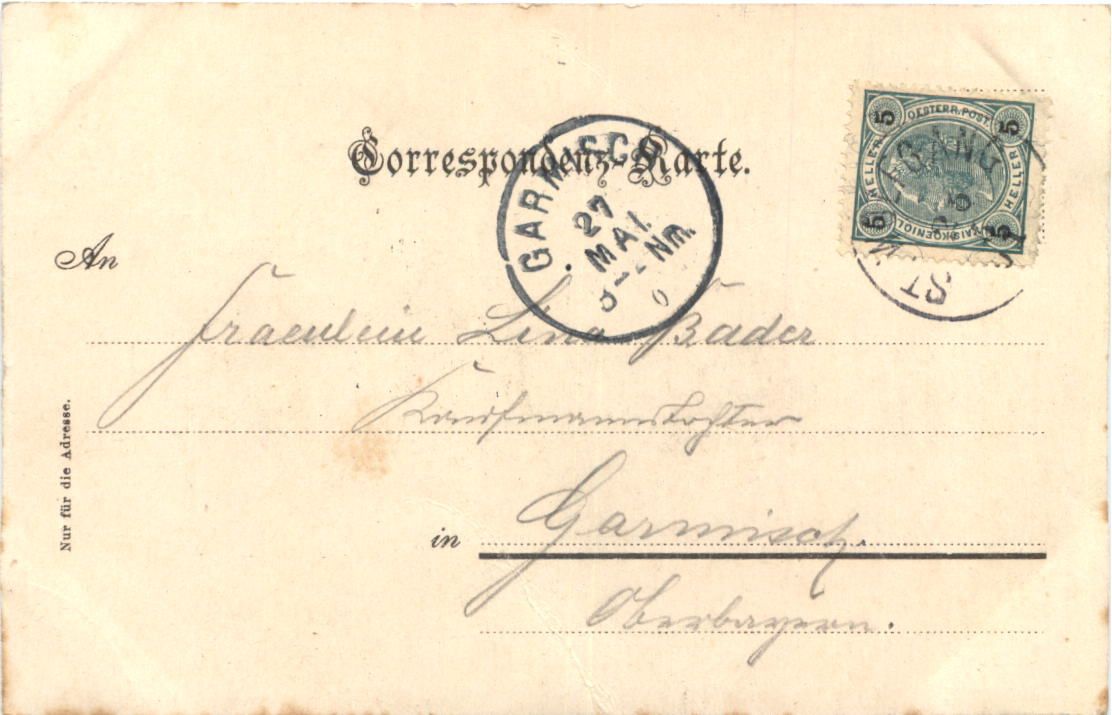 Correspondenz-Karte.
5 OESTERR. POST. 5
HELLER HELLER
5 5
GARMISCH
27
MAI.
NM.
ST. WOLFGANG
An
Fraeulein Lina Bader
Kaufmannstochter
in Garmisch.
Oberbayern.
Nur für die Adresse.